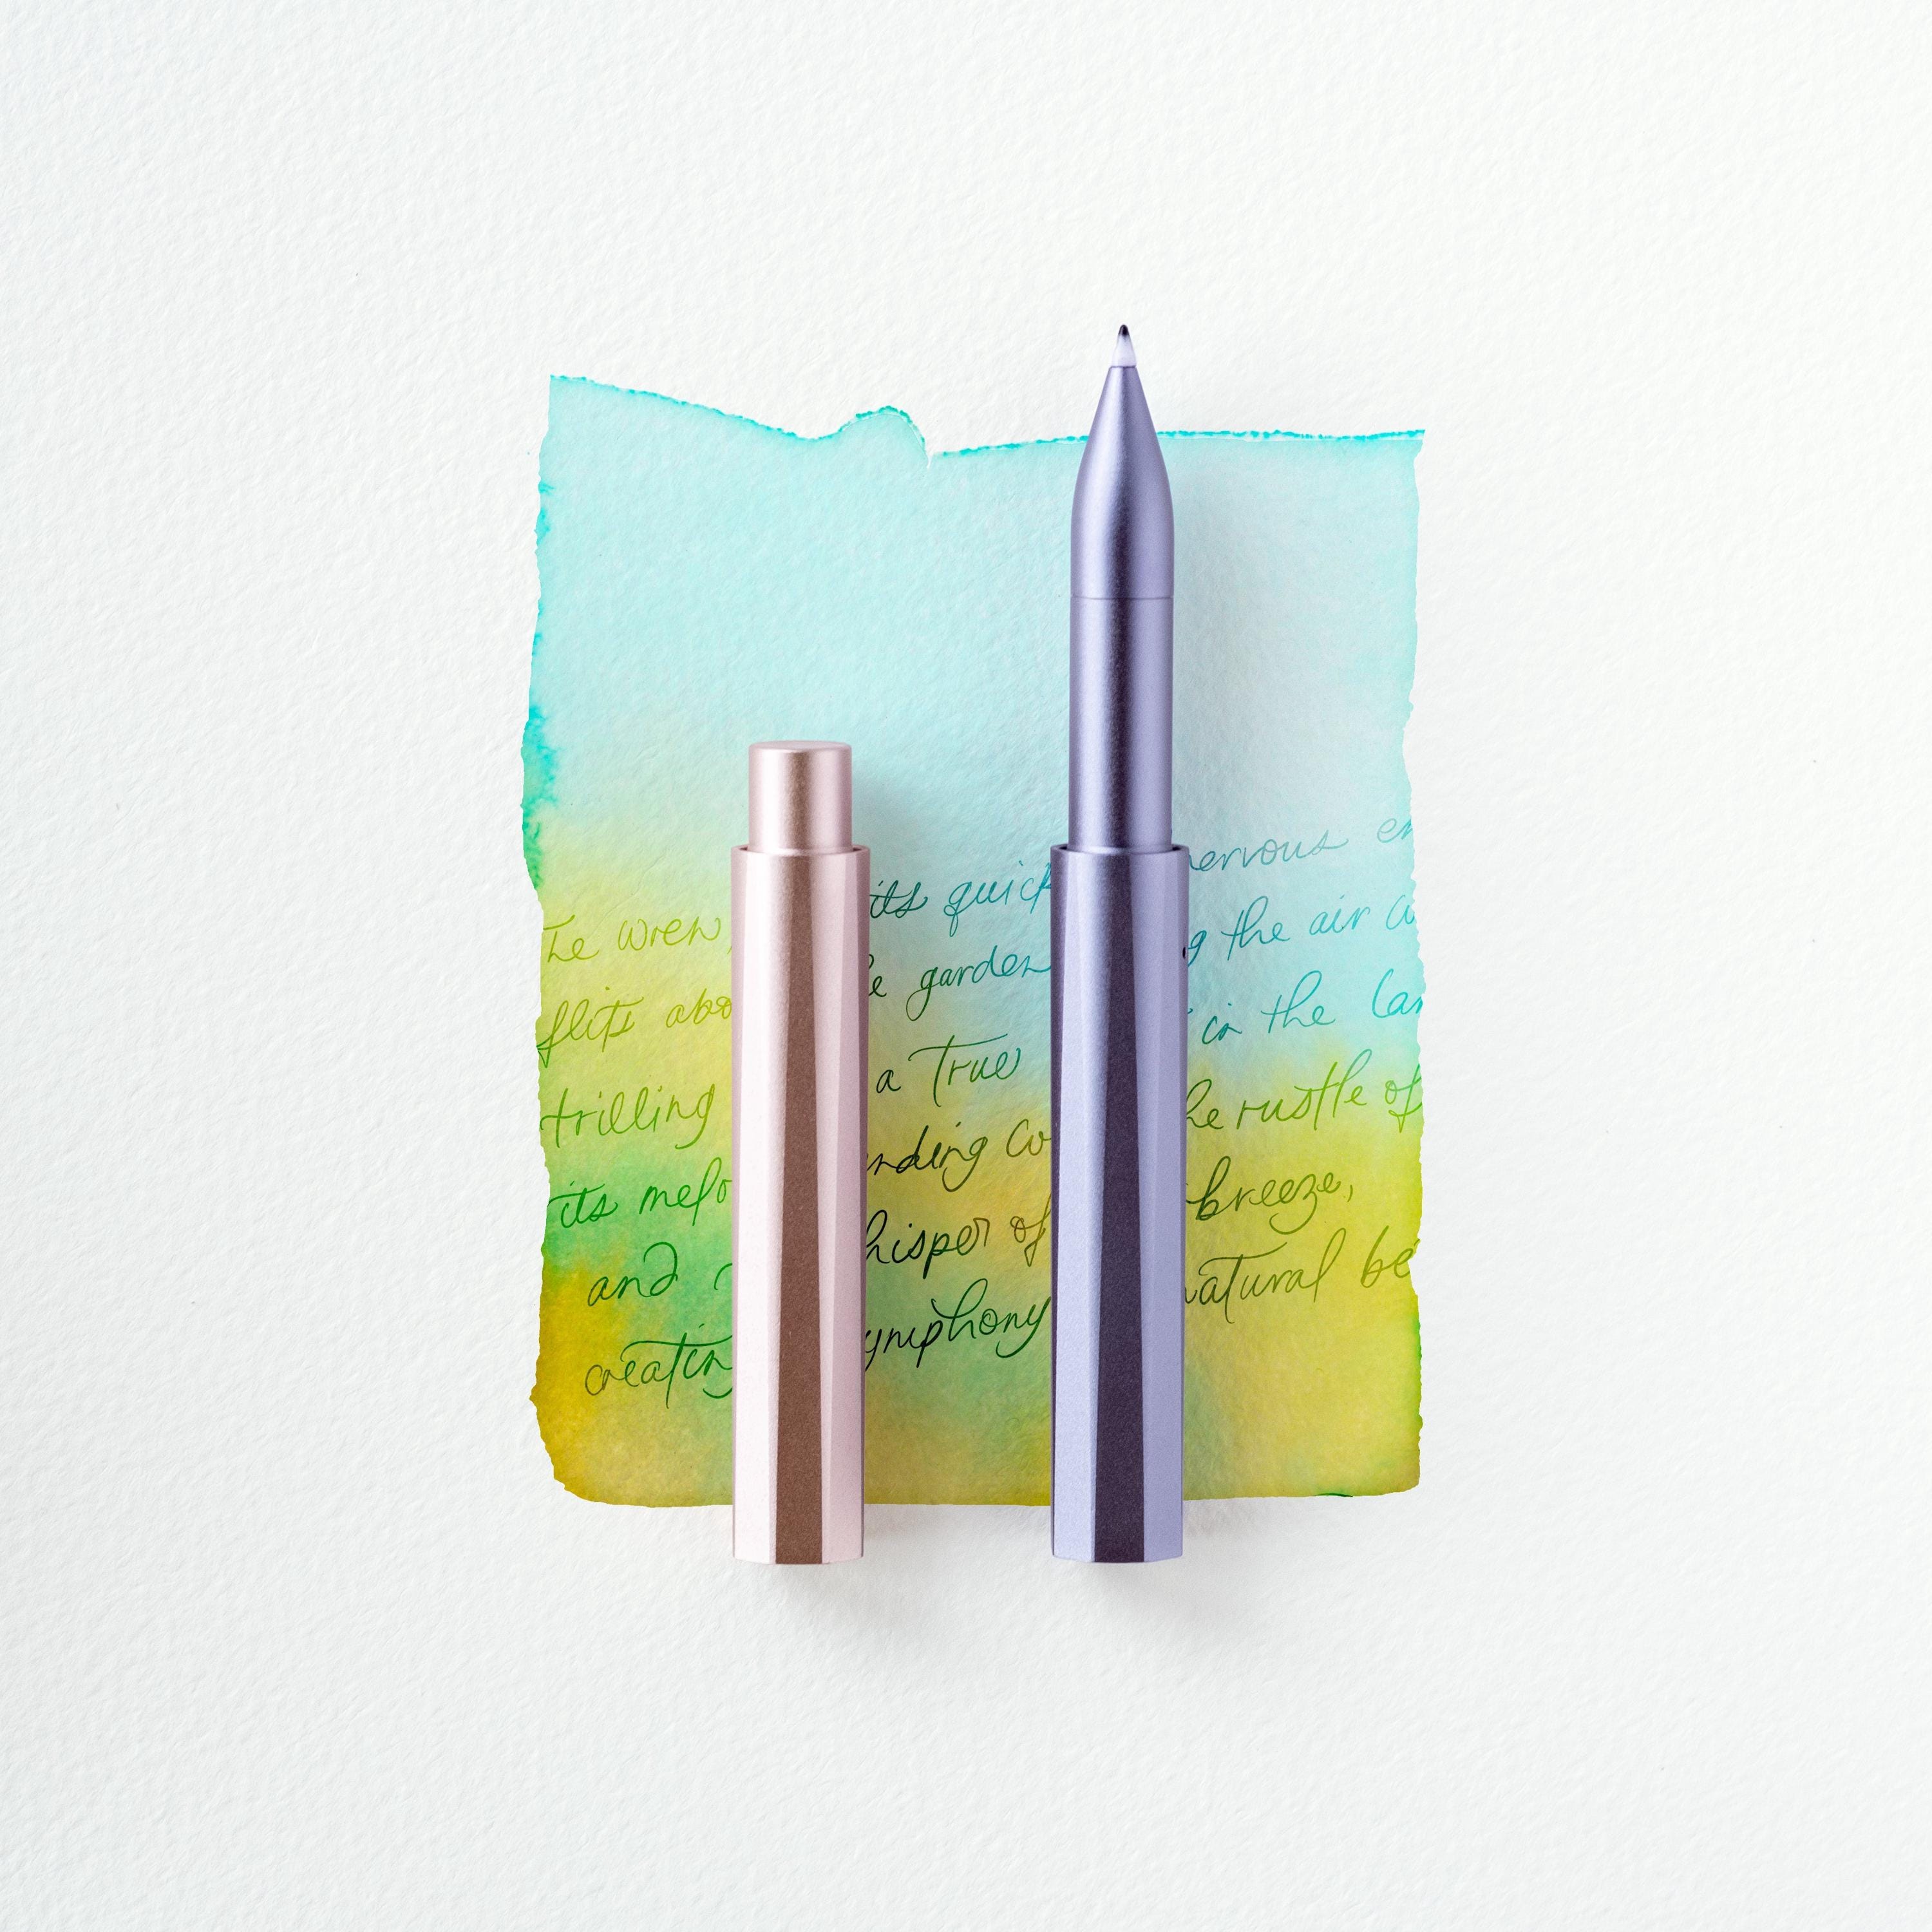 The wren, its quick nervous en
flits abo e garden g the air
trilling a true in the lan
its melo nding co he rustle of
and hisper of breeze,
creating ymphony natural be